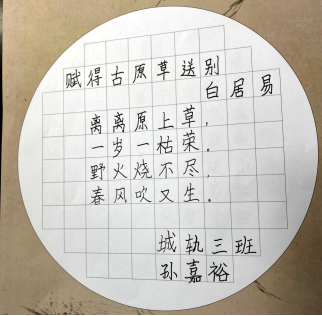 赋得古原草送别
白居易
离离原上草，
一岁一枯荣。
野火烧不尽，
春风吹又生。
城轨三班
孙嘉裕